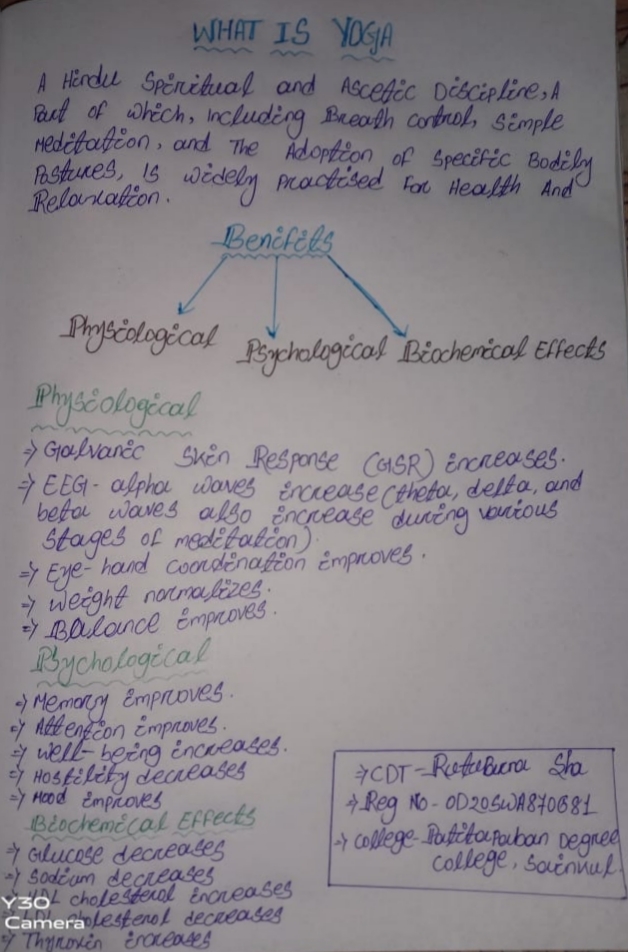 WHAT IS YOGA
A Hindu Spiritual and Ascetic Discipline, A
Part of which, including Breath control, Simple
Meditation, and The Adoption of Specific Bodily
Postures, Is widely practised For Health And
Relaxation.
Benifits
Physiological
Psychological
Biochemical Effects
Physiological
⇒ Galvanic Skin Response (GSR) increases.
⇒ EEG- alpha waves increase (theta, delta, and
beta waves also increase during various
Stages of meditation).
⇒ Eye-hand coordination improves.
⇒ Weight normalizes.
⇒ Balance improves.
Psychological
⇒ Memory improves.
⇒ Attention improves.
⇒ Well-being increases.
⇒ Hostility decreases
⇒ Mood improves
Biochemical Effects
⇒ Glucose decreases
⇒ Sodium decreases
cholesterol increases
cholesterol decreases
⇒ Thyroxin increases
⇒ CDT-
Sha
⇒ Reg No - OD20SWA870681
⇒ College- Patitapaban Degree
College,
Y30
Camera